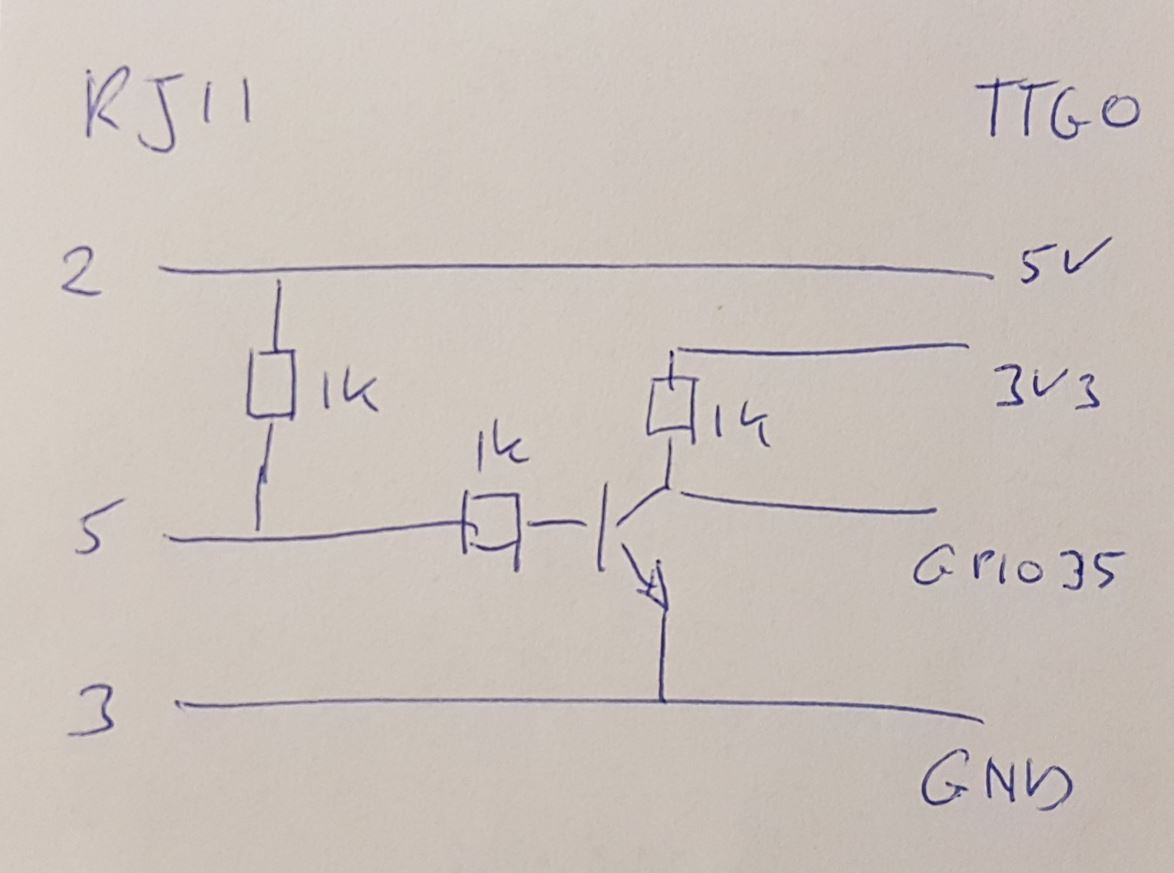 RJ11 TTGO
2 5V
1K 1K 3V3
1k
5 GPIO35
3 GND